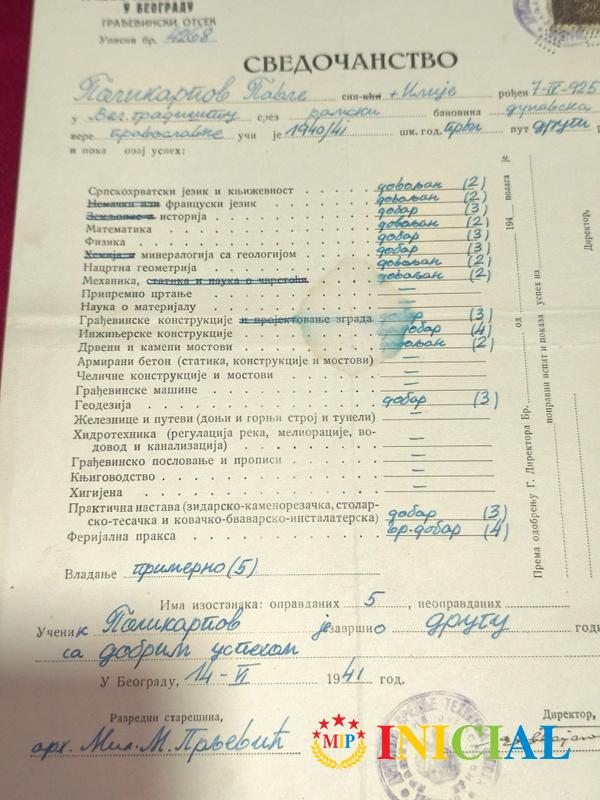 У БЕОГРАДУ
ГРАЂЕВИНСКИ ОТСЕК
Уписни бр. 4268
СВЕДОЧАНСТВО
Поликарпов Павле син-кћи + Илије рођен 7-IV-925
у Вел. градишту срез рамски бановина дунавска
вере православне учи је 1940/41 шк. год. први пут другу
и пока овај успех:
Српскохрватски језик и књижевност довољан (2)
Немачки или француски језик довољан (2)
Земљопис и историја добар (3)
Математика довољан (2)
Физика добар (3)
Хемија и минералогија са геологијом добар (3)
Нацртна геометрија довољан (2)
Механика, статика и наука о чврстоћи довољан (2)
Припремно цртање —
Наука о материјалу —
Грађевинске конструкције и пројектовање зграда добар (3)
Инжињерске конструкције вр. добар (4)
Дрвени и камени мостови довољан (2)
Армирани бетон (статика, конструкције и мостови) —
Челичне конструкције и мостови —
Грађевинске машине —
Геодезија добар (3)
Железнице и путеви (доњи и горњи строј и тунели) —
Хидротехника (регулација река, мелиорације, во-
довод и канализација) —
Грађевинско пословање и прописи —
Књиговодство —
Хигијена —
Практична настава (зидарско-каменорезачка, столар-
ско-тесачка и ковачко-бваварско-инсталатерска) добар (3)
Феријална пракса вр. добар (4)
Владање примерно (5)
Има изостанака: оправданих 5, неоправданих
Ученик Поликарпов је завршио другу годи
са добрим успехом
У Београду, 14-VI 1941 год.
Разредни старешина,
Директор,
арх. Мил. М. Прљевић
194 полага је
од
Према одобрењу Г. Директора Бр.
поправни испит и показа успех из
Директор,
MIP
INICIAL